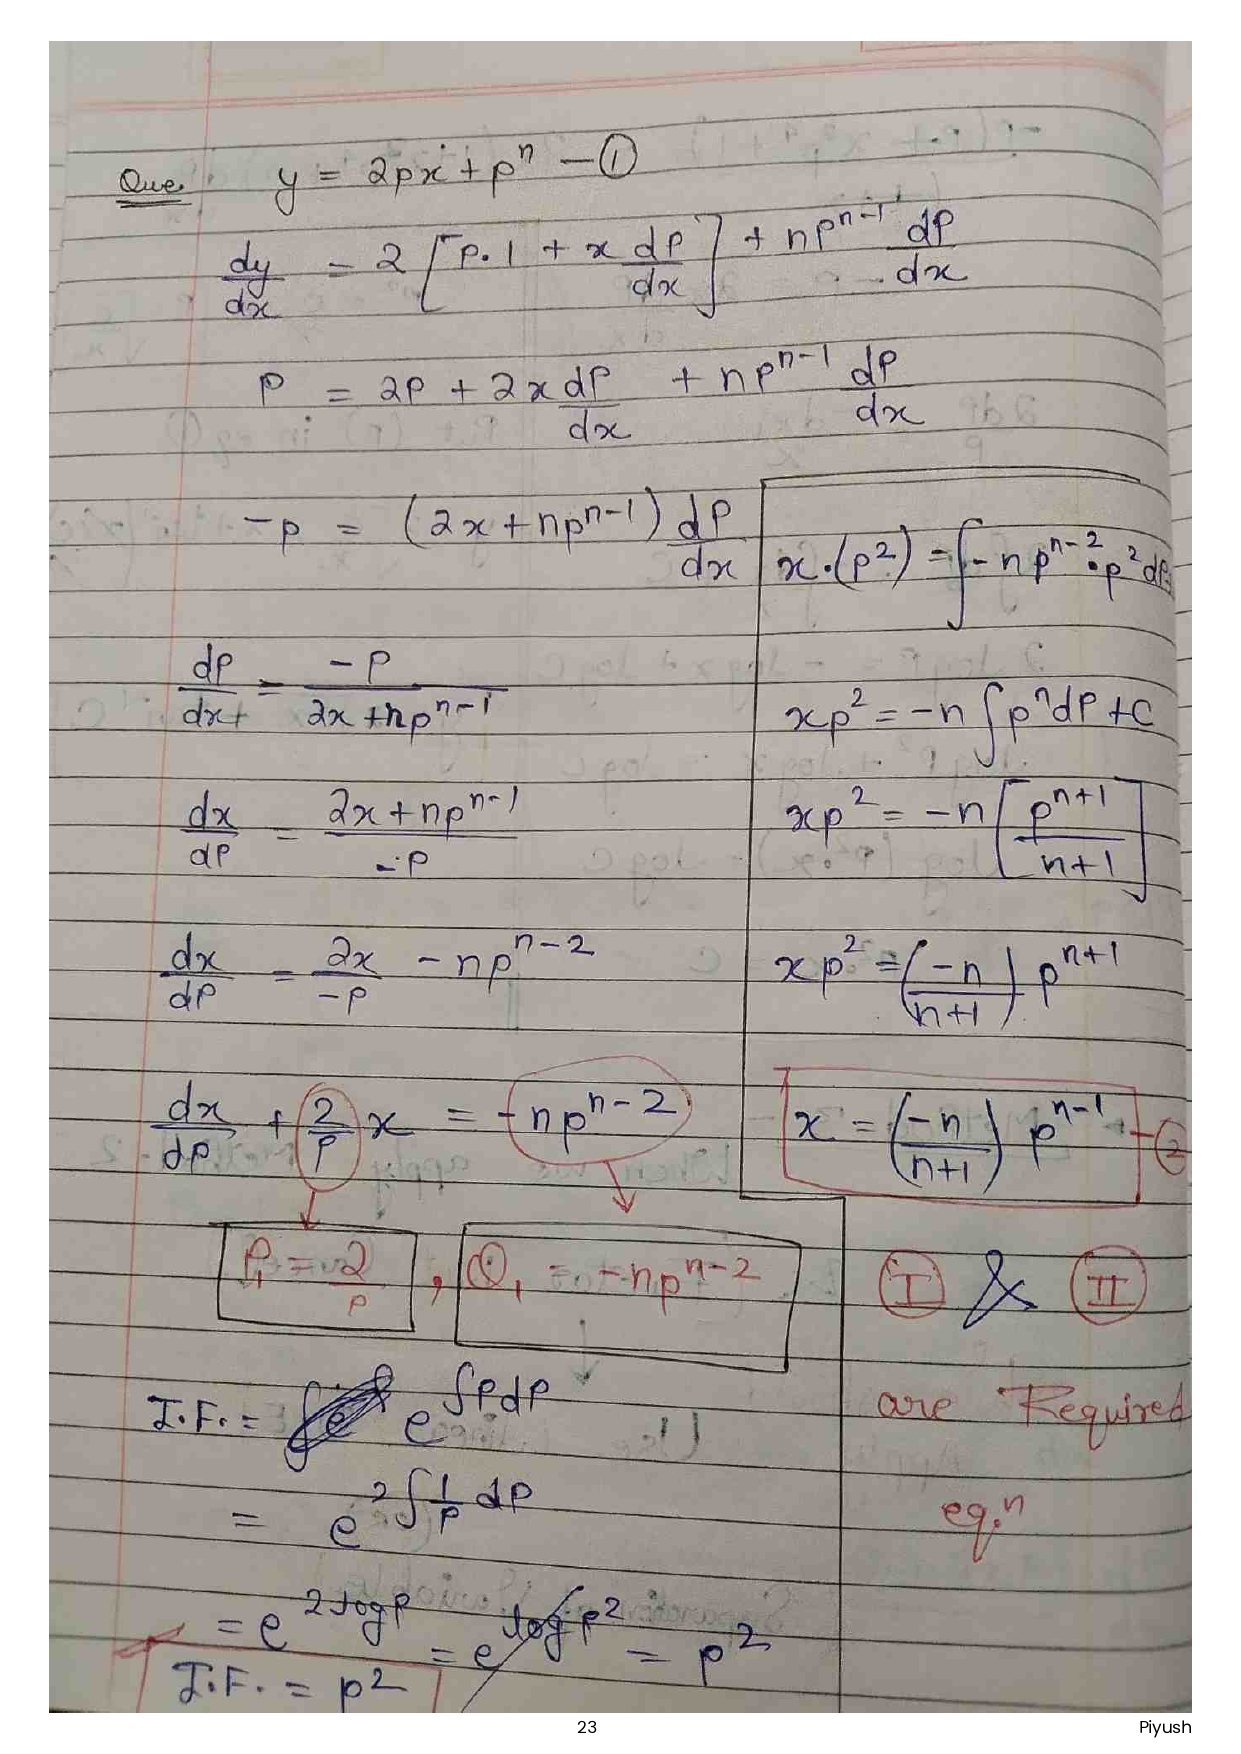 Que. y = 2px + pⁿ — ①
dy/dx = 2[p.1 + x dp/dx] + npⁿ⁻¹ dp/dx
p = 2p + 2x dp/dx + npⁿ⁻¹ dp/dx
-p = (2x + npⁿ⁻¹) dp/dx
dp/dx = -p/(2x + npⁿ⁻¹)
dx/dp = (2x + npⁿ⁻¹)/-p
dx/dp = 2x/-p - npⁿ⁻²
dx/dp + 2/p x = -npⁿ⁻²
P₁ = 2/p , Q₁ = -npⁿ⁻²
I.F. = e^∫Pdp
= e^2∫1/p dp
= e^2logp = e^logp² = p²
I.F. = p²
x.(p²) = ∫-npⁿ⁻².p²dp
xp² = -n∫pⁿdp + C
xp² = -n[pⁿ⁺¹/n+1]
xp² = (-n/n+1) pⁿ⁺¹
x = (-n/n+1) pⁿ⁻¹ — ②
Ⓘ & Ⓘ Ⓘ
are Required
eq.ⁿ
23
Piyush